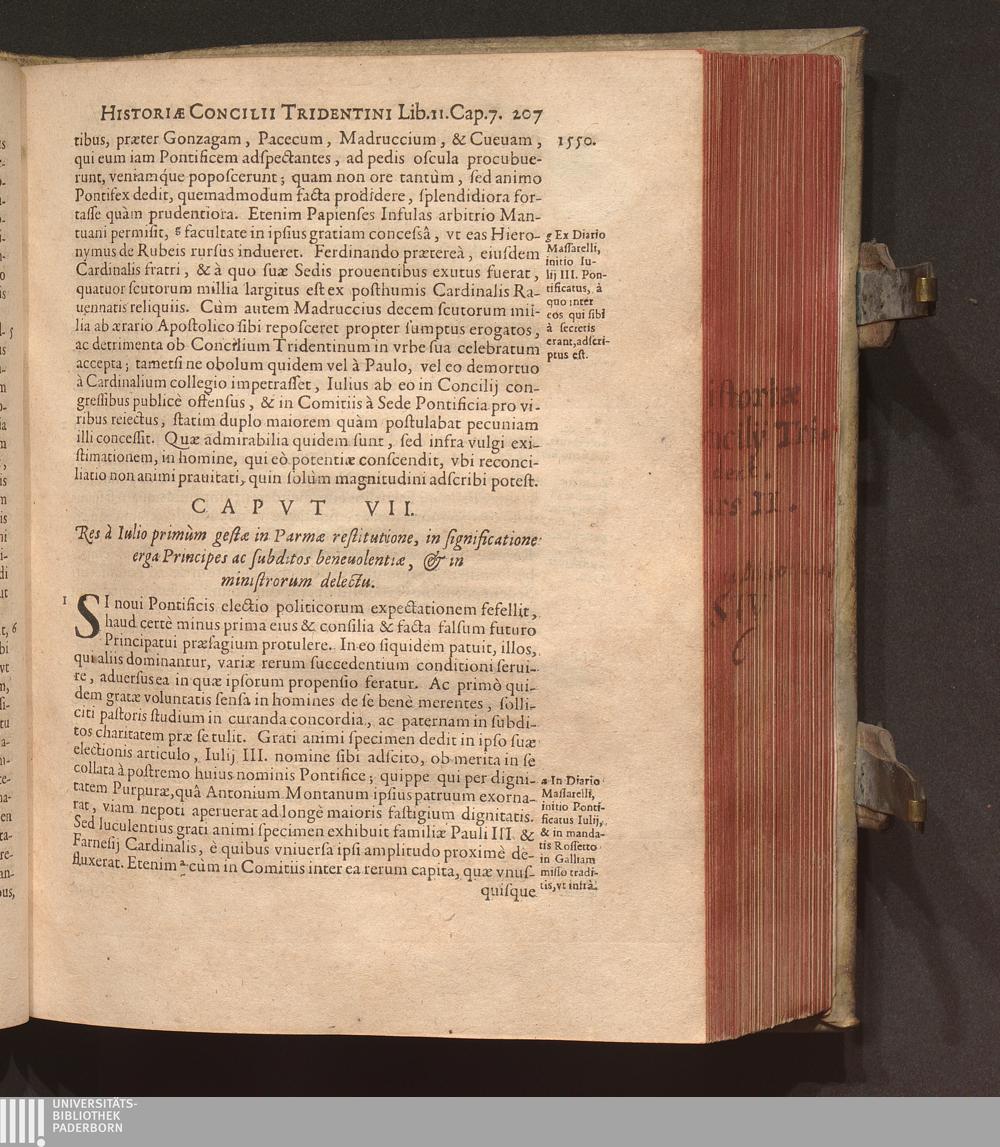 HISTORIÆ CONCILII TRIDENTINI Lib.11.Cap.7. 207
tibus, præter Gonzagam, Pacecum, Madruccium, & Cueuam,
qui eum iam Pontificem adſpectantes, ad pedis oſcula procubue-
runt, veniamque popoſcerunt; quam non ore tantùm, ſed animo
Pontifex dedit, quemadmodum facta prodidere, ſplendidiora for-
taſſe quàm prudentiora. Etenim Papienſes Infulas arbitrio Man-
tuani permiſit, g facultate in ipſius gratiam conceſsâ, vt eas Hiero-
nymus de Rubeis rurſus indueret. Ferdinando prætereà, eiuſdem
Cardinalis fratri, & à quo ſuæ Sedis prouentibus exutus fuerat,
quatuor ſcutorum millia largitus eſt ex poſthumis Cardinalis Ra-
uennatis reliquiis. Cùm autem Madruccius decem ſcutorum mil-
lia ab ærario Apoſtolico ſibi repoſceret propter ſumptus erogatos,
ac detrimenta ob Concilium Tridentinum in vrbe ſua celebratum
accepta; tametſi ne obolum quidem vel à Paulo, vel eo demortuo
à Cardinalium collegio impetraſſet, Iulius ab eo in Concilij con-
greſſibus publicè offenſus, & in Comitiis à Sede Pontificia pro vi-
ribus reiectus, ſtatim duplo maiorem quàm poſtulabat pecuniam
illi conceſſit. Quæ admirabilia quidem ſunt, ſed infra vulgi exi-
ſtimationem, in homine, qui eò potentiæ conſcendit, vbi reconci-
liatio non animi prauitati, quin ſolùm magnitudini adſcribi poteſt.
1550.
g Ex Diario
Maſſarelli,
initio Iu-
lij III. Pon-
tificatus, à
quo inter
eos qui ſibi
à ſecretis
erant, adſcri-
ptus eſt.
CAPVT VII.
Res à Iulio primùm geſtæ in Parmæ reſtitutione, in ſignificatione
erga Principes ac ſubditos beneuolentiæ, & in
miniſtrorum delectu.
1 SI noui Pontificis electio politicorum expectationem fefellit,
haud certè minus prima eius & conſilia & facta falſum futuro
Principatui præſagium protulere. In eo ſiquidem patuit, illos,
qui aliis dominantur, variæ rerum ſuccedentium conditioni ſerui-
re, aduerſus ea in quæ ipſorum propenſio feratur. Ac primò qui-
dem gratæ voluntatis ſenſa in homines de ſe benè merentes, ſolli-
citi paſtoris ſtudium in curanda concordia, ac paternam in ſubdi-
tos charitatem præ ſe tulit. Grati animi ſpecimen dedit in ipſo ſuæ
electionis articulo, Iulij III. nomine ſibi adſcito, ob merita in ſe
collata à poſtremo huius nominis Pontifice; quippe qui per digni-
tatem Purpuræ, quâ Antonium Montanum ipſius patruum exorna-
rat, viam nepoti aperuerat ad longè maioris faſtigium dignitatis.
Sed luculentius grati animi ſpecimen exhibuit familiæ Pauli III. &
Farneſij Cardinalis, è quibus vniuerſa ipſi amplitudo proximè de-
fluxerat. Etenim a cùm in Comitiis inter ea rerum capita, quæ vnuſ-
quiſque
a In Diario
Maſſarelli,
initio Ponti-
ficatus Iulij,
& in manda-
tis Roſſetto
in Galliam
miſſo tradi-
tis, vt infrà.
UNIVERSITÄTS-
BIBLIOTHEK
PADERBORN